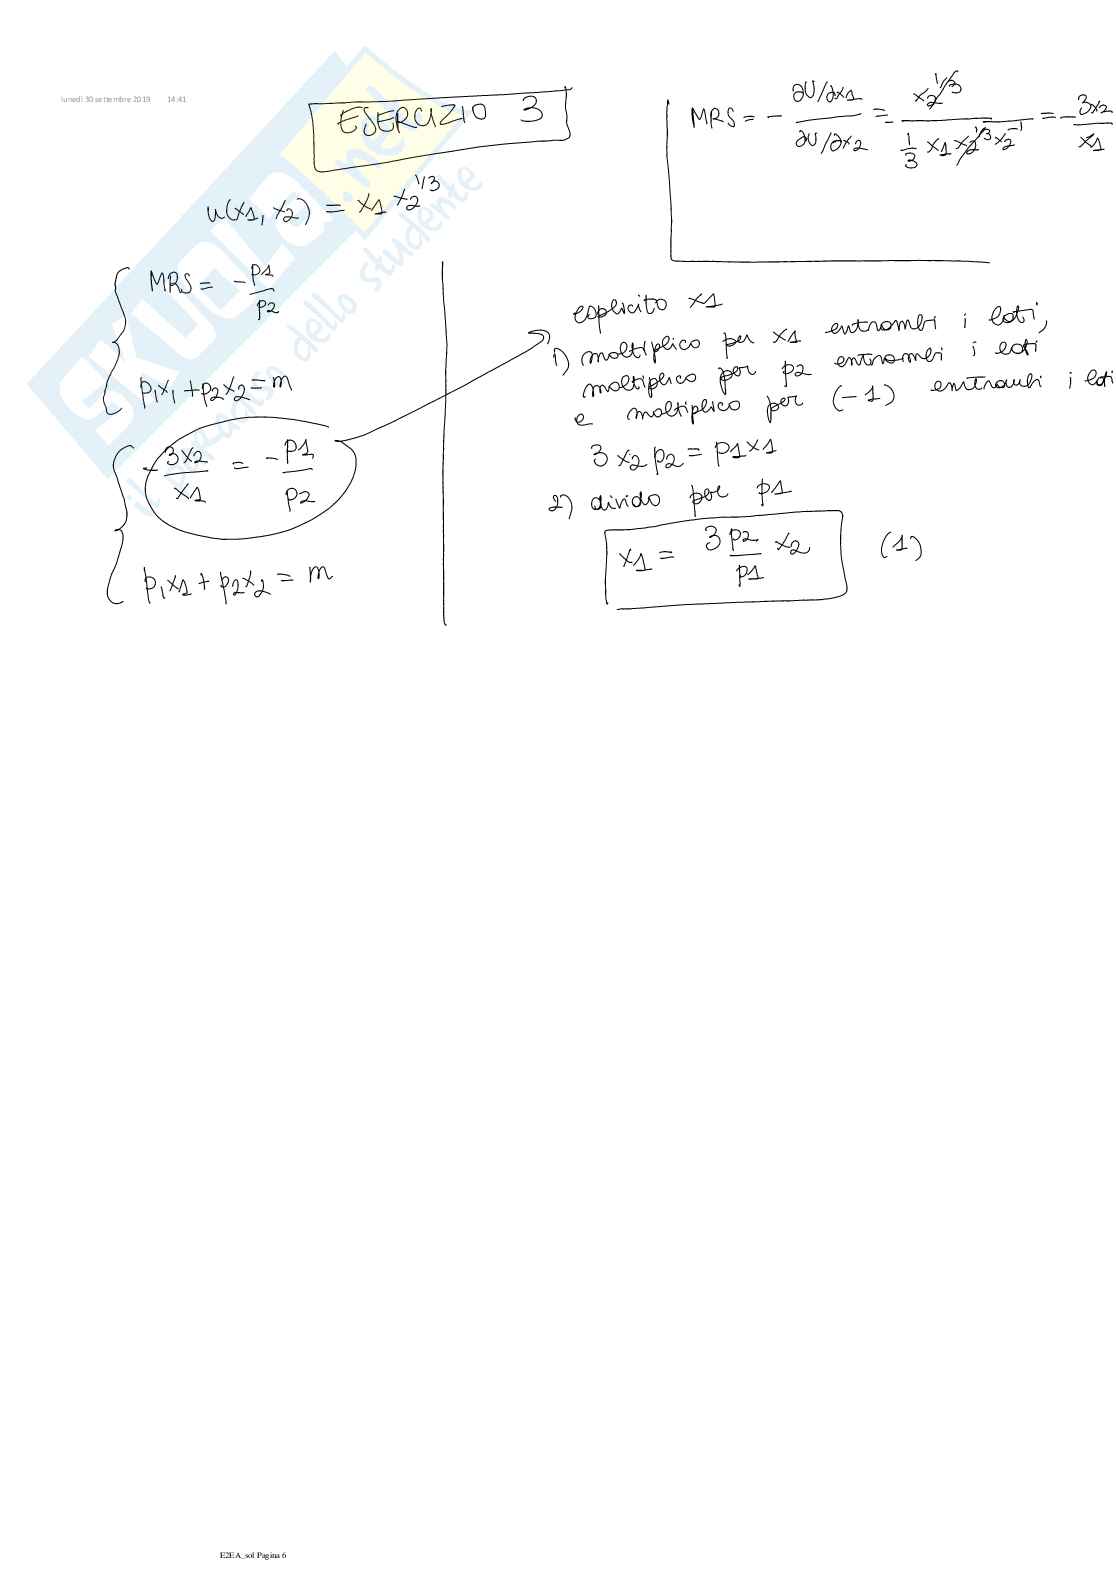 lunedì 30 settembre 2019 14:41
ESERCIZIO 3
u(x1, x2) = x1 x2^1/3
MRS = - ∂U/∂x1 / ∂U/∂x2 = - x2^1/3 / 1/3 x1 x2^1/3 x2^-1 = - 3x2 / x1
MRS = - p1 / p2
p1x1 + p2x2 = m
- 3x2 / x1 = - p1 / p2
p1x1 + p2x2 = m
esplicito x1
1) moltiplico per x1 entrambi i lati,
moltiplico per p2 entrambi i lati
e moltiplico per (-1) entrambi i lati
3 x2 p2 = p1 x1
2) divido per p1
x1 = 3 p2 / p1 x2 (1)
SKUOLA.net
il paradiso dello studente
E2EA_sol Pagina 6